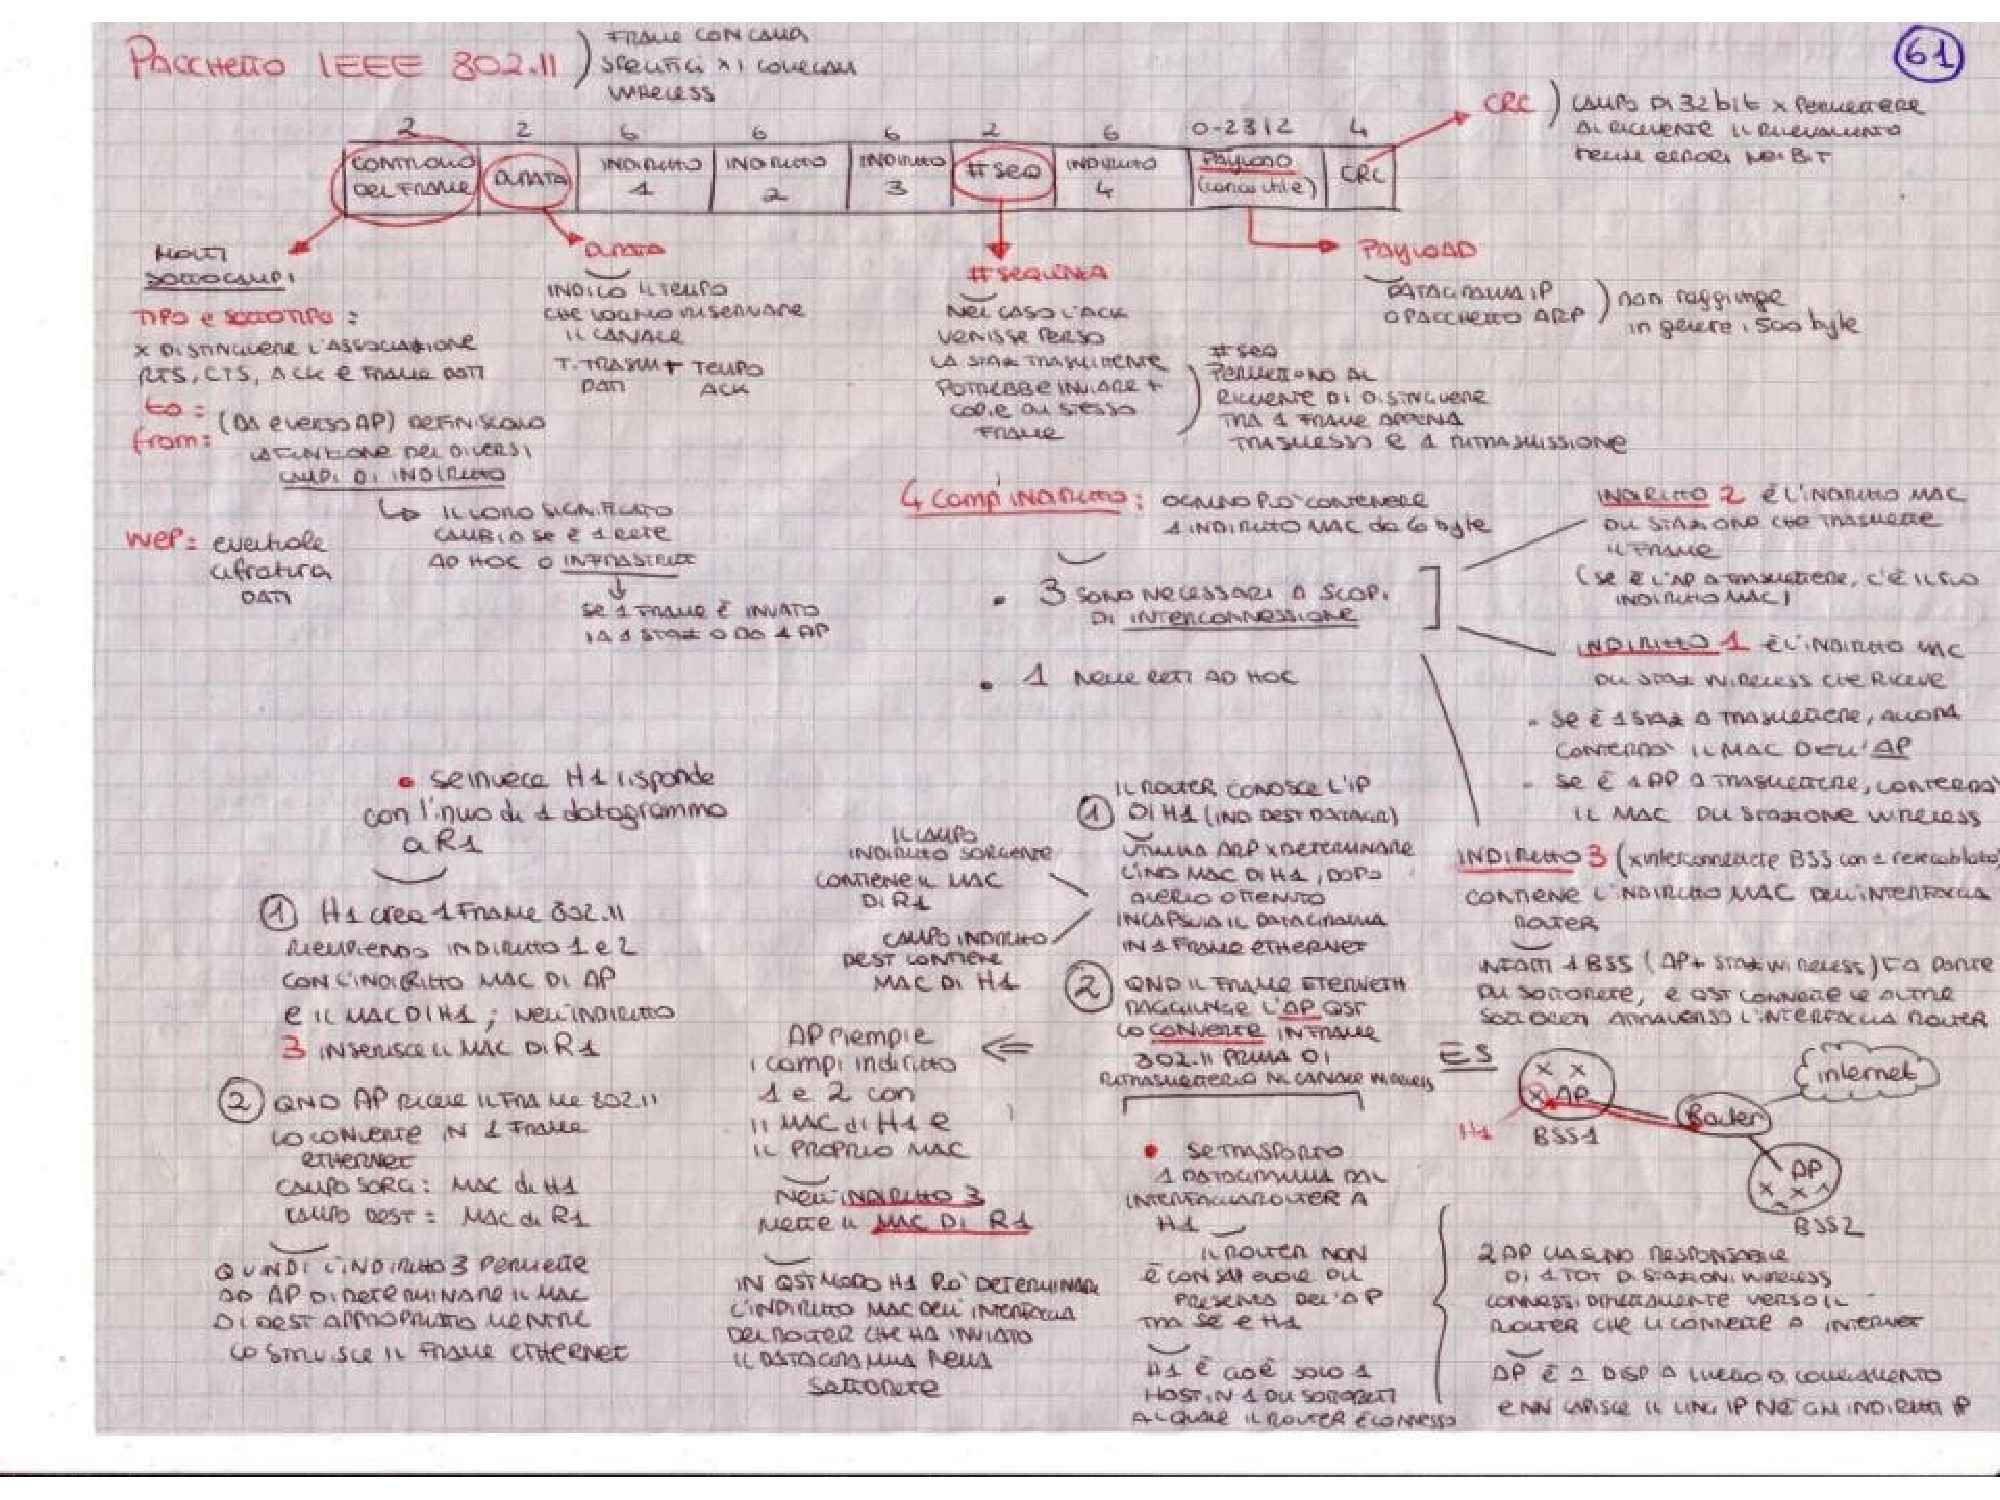 PACCHETTO IEEE 802.11
FRAME CON CAMPI
SPECIFICI X I COLLEGAM
WIRELESS
61
2 2 6 6 6 2 6 0-2312 4
CONTROLLO DEL FRAME
DURATA
INDIRIZZO 1
INDIRIZZO 2
INDIRIZZO 3
# SEQ
INDIRIZZO 4
PAYLOAD (carico utile)
CRC
CRC
CAMPO DI 32 bit x PERMETTERE
AL RICEVENTE IL RILEVAMENTO
DEGLI ERRORI NEI BIT
MOLTI
SOTTOCAMPI
TIPO e SOTTOTIPO :
X DISTINGUERE L'ASSOCIAZIONE
RTS, CTS, ACK E FRAME DATI
to :
from :
(DA E VERSO AP) DEFINISCONO
LA FUNZIONE DEI DIVERSI
CAMPI DI INDIRIZZO
IL LORO SIGNIFICATO
CAMBIA SE È 1 RETE
AD HOC O INFRASTRUTT
SE 1 FRAME È INVIATO
DA 1 STAZ O DA 1 AP
WEP = eventuale
cifratura
DATI
DURATA
INDICA IL TEMPO
CHE VOGLIO RISERVARE
IL CANALE
T. TRASM + TEMPO
DATI ACK
# SEQUENZA
NEL CASO L'ACK
VENISSE PERSO
LA STAZ TRASMITTENTE
POTREBBE INVIARE +
COPIE DELLO STESSO
FRAME
# SEQ
PERMETTONO AL
RICEVENTE DI DISTINGUERE
TRA 1 FRAME APPENA
TRASMESSO E 1 RITRASMISSIONE
PAYLOAD
DATAGRAMMA IP
O PACCHETTO ARP
non raggiunge
in genere 1500 byte
4 CAMPI INDIRIZZO :
OGNUNO PUÒ CONTENERE
1 INDIRIZZO MAC da 6 byte
• 3 SONO NECESSARI A SCOPI
DI INTERCONNESSIONE
• 1 NELLE RETI AD HOC
INDIRIZZO 2 È L'INDIRIZZO MAC
DELLA STAZIONE CHE TRASMETTE
IL FRAME
(SE È L'AP A TRASMETTERE, C'È IL SUO
INDIRIZZO MAC)
INDIRIZZO 1 È L'INDIRIZZO MAC
DELLA STAZ WIRELESS CHE RICEVE
- SE È 1 STAZ A TRASMETTERE, ALLORA
CONTERRÀ IL MAC DELL'AP
- SE È 1 AP A TRASMETTERE, CONTERRÀ
IL MAC DELLA STAZIONE WIRELESS
INDIRIZZO 3 (x interconnettere BSS con 1 rete cablata)
CONTIENE L'INDIRIZZO MAC DELL'INTERFACCIA
ROUTER
INFATTI 1 BSS (AP + STAZ WIRELESS) FA PARTE
DELLA SOTTORETE, E QST CONNETTE LE ALTRE
SOTTORETI ATTRAVERSO L'INTERFACCIA ROUTER
ES
x x
AP
H1
BSS1
Router
internet
AP
x x x
BSS2
2 AP CIASCUNO RESPONSABILE
DI 1 TOT DI STAZIONI WIRELESS
CONNESSI DIRETTAMENTE VERSO IL
ROUTER CHE LI CONNETTE A INTERNET
AP È 1 DISP A LIVELLO DI COLLEGAMENTO
E NN CAPISCE IL LING IP NÉ GLI INDIRIZZI IP
• SE TRASPORTO
1 DATAGRAMMA DAL
INTERFACCIA ROUTER A
H1
IL ROUTER NON
È CONSAPEVOLE DELLA
PRESENZA DELL'AP
TRA SÉ E H1
H1 È CIOÈ SOLO 1
HOST IN 1 DELLE SOTTORETI
AL QUALE IL ROUTER È CONNESSO
1 IL ROUTER CONOSCE L'IP
DI H1 (IND DEST DATAGR)
UTILIZZA ARP X DETERMINARE
L'IND MAC DI H1, DOPO
AVERLO OTTENUTO
INCAPSULA IL DATAGRAMMA
IN 1 FRAME ETHERNET
IL CAMPO
INDIRIZZO SORGENTE
CONTIENE IL MAC
DI R1
CAMPO INDIRIZZO
DEST CONTIENE
MAC DI H1
2 QND IL FRAME ETERNETH
RAGGIUNGE L'AP QST
LO CONVERTE IN FRAME
802.11 PRIMA DI
RITRASMETTERLO NL CANALE WIRELESS
AP riempie
i campi indirizzo
1 e 2 con
il MAC di H1 e
IL PROPRIO MAC
NELL'INDIRIZZO 3
METTE IL MAC DI R1
IN QST MODO H1 PUÒ DETERMINARE
L'INDIRIZZO MAC DELL'INTERFACCIA
DEL ROUTER CHE HA INVIATO
IL DATAGRAMMA NELLA
SOTTORETE
• Se invece H1 risponde
con l'invio di 1 datagramma
a R1
1 H1 crea 1 FRAME 802.11
RIEMPIENDO INDIRIZZO 1 e 2
CON L'INDIRIZZO MAC DI AP
E IL MAC DI H1 ; NELL'INDIRIZZO
3 INSERISCE IL MAC DI R1
2 QND AP RICEVE IL FRAME 802.11
LO CONVERTE IN 1 FRAME
ETHERNET
CAMPO SORG : MAC di H1
CAMPO DEST = MAC di R1
QUINDI L'INDIRIZZO 3 PERMETTE
AD AP DI DETERMINARE IL MAC
DI DEST APPROPRIATO MENTRE
COSTRUISCE IL FRAME ETHERNET